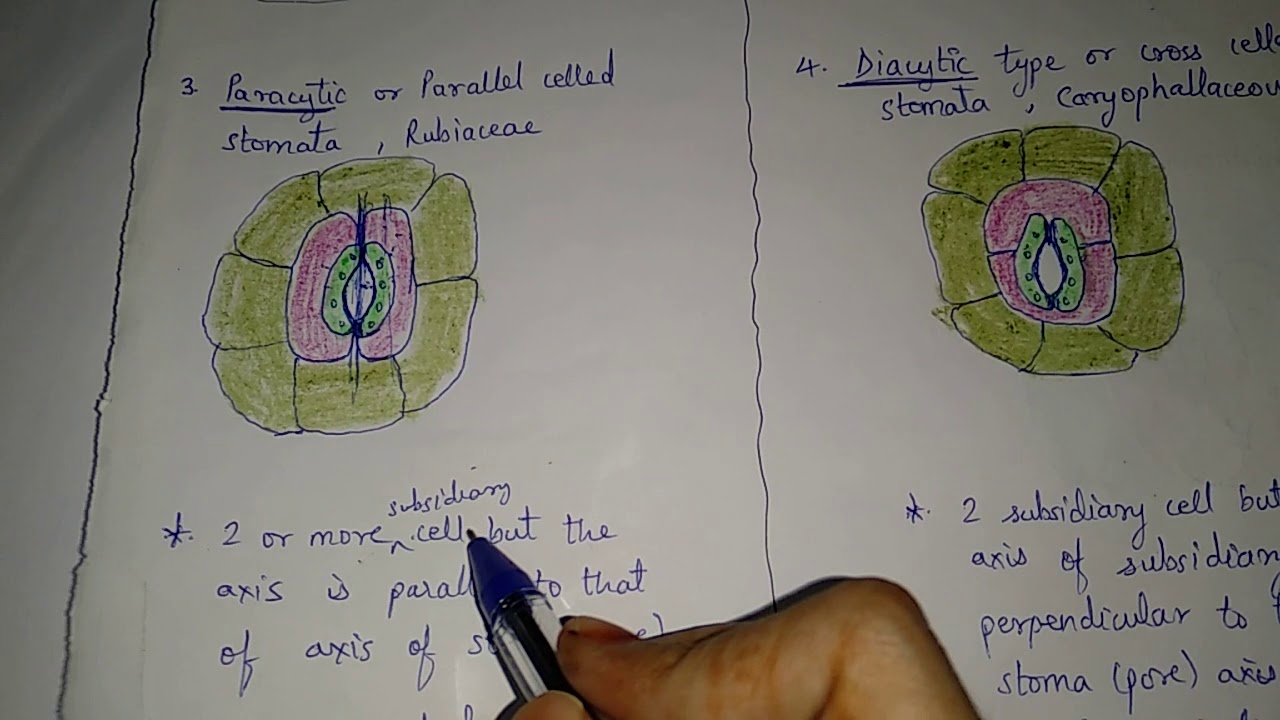 3. Paracytic or Parallel celled
stomata, Rubiaceae
* 2 or more ^ subsidiary cell but the
axis is to that
of axis of
4. Diacytic type or cross
stomata, Caryophallaceou
* 2 subsidiary cell but
axis of subsidian
perpendicular to
stoma (pore) axis